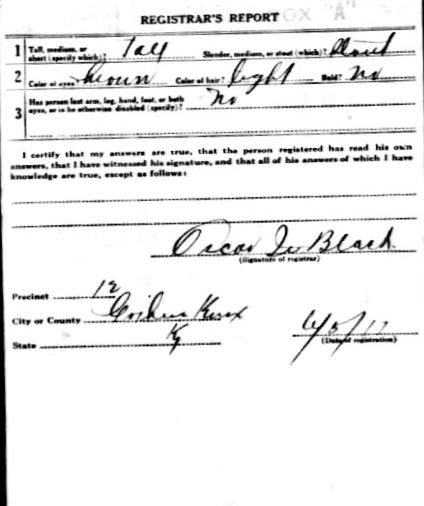 REGISTRAR'S REPORT
1 Tall, medium, or short (specify which)? Tall Slender, medium, or stout (which)? Stout
2 Color of eyes? Brown Color of hair? light Bald? No
3 Has person lost arm, leg, hand, foot, or both eyes, or is he otherwise disabled (specify)? No
I certify that my answers are true, that the person registered has read his own
answers, that I have witnessed his signature, and that all of his answers of which I have
knowledge are true, except as follows:
Oscar Black
(Signature of registrar)
Precinct 12
City or County Knox
State Ky
6/5/17
(Date of registration)